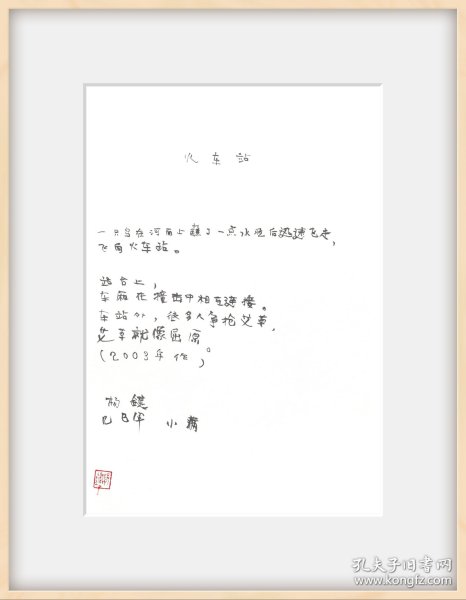 火车站
一只鸟在河面上蘸了一点水然后迅速飞走,
飞向火车站。
站台上,
车厢在撞击中相互连接。
车站外,很多人争抢艾草,
艾草就像屈原。
(2003年作)
杨键
乙巳年 小
孔夫子旧书网
www.kongfz.com